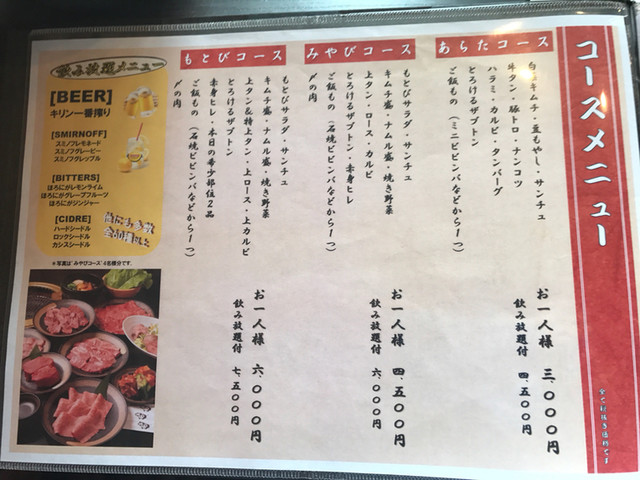 コースメニュー
全て税抜き価格です
あらたコース
白菜キムチ・豆もやし・サンチュ
牛タン・豚トロ・ナンコツ
ハラミ・カルビ・タンバーグ
とろけるザブトン
ご飯もの（ミニビビンバなどから一つ）
お一人様 三、〇〇〇円
飲み放題付 四、五〇〇円
みやびコース
もとびサラダ・サンチュ
キムチ盛・ナムル盛・焼き野菜
上タン・ロース・カルビ
とろけるザブトン・赤身ヒレ
ご飯もの（石焼ビビンバなどから一つ）
〆の肉
お一人様 四、五〇〇円
飲み放題付 六、〇〇〇円
もとびコース
もとびサラダ・サンチュ
キムチ盛・ナムル盛・焼き野菜
上タン&特上タン・上ロース・上カルビ
とろけるザブトン
赤身ヒレ・本日の希少部位2品
ご飯もの（石焼ビビンバなどから一つ）
〆の肉
お一人様 六、〇〇〇円
飲み放題付 七、五〇〇円
飲み放題メニュー
[BEER]
キリン一番搾り
[SMIRNOFF]
スミノフレモネード
スミノフグレーピー
スミノフグレップル
[BITTERS]
ほろにがレモンライム
ほろにがグレープフルーツ
ほろにがジンジャー
[CIDRE]
ハードシードル
ロックシードル
カシスシードル
他にも多数
全60種以上
※写真は"みやびコース"4名様分です。